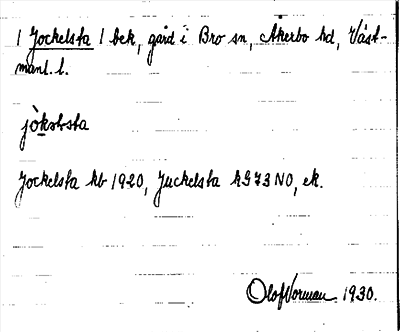 1 Jockelsta / bek, gård i Bro sn, Åkerbo hd, Väst-
manl. l.
jòkəlsta
Jockelsta kb 1920, Juckelsta hS73NO, ek.
Olof Norman 1930.